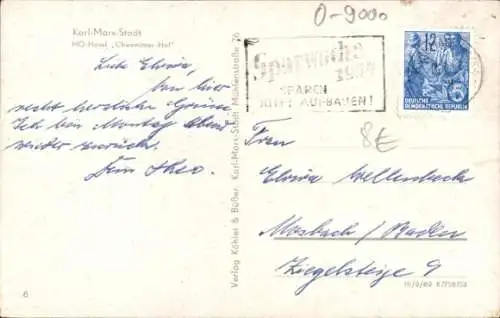 Karl-Marx-Stadt
HO-Hotel „Chemnitzer Hof“
0-9000
Sparwoche
1954
SPAREN
HILFT AUFBAUEN!
12
DEUTSCHE
DEMOKRATISCHE REPUBLIK
8€
Liebe Elvira,
von hier
recht herzliche Grüsse
Ich bin Montag Abend
wieder zurück.
Dein Theo.
Verlag Köhler & Büßer, Karl-Marx-Stadt, Mühlenstraße 76
Frau
Elvira Wellenbeck
Mosbach / Baden
Ziegelsteige 9
6
III/9/69